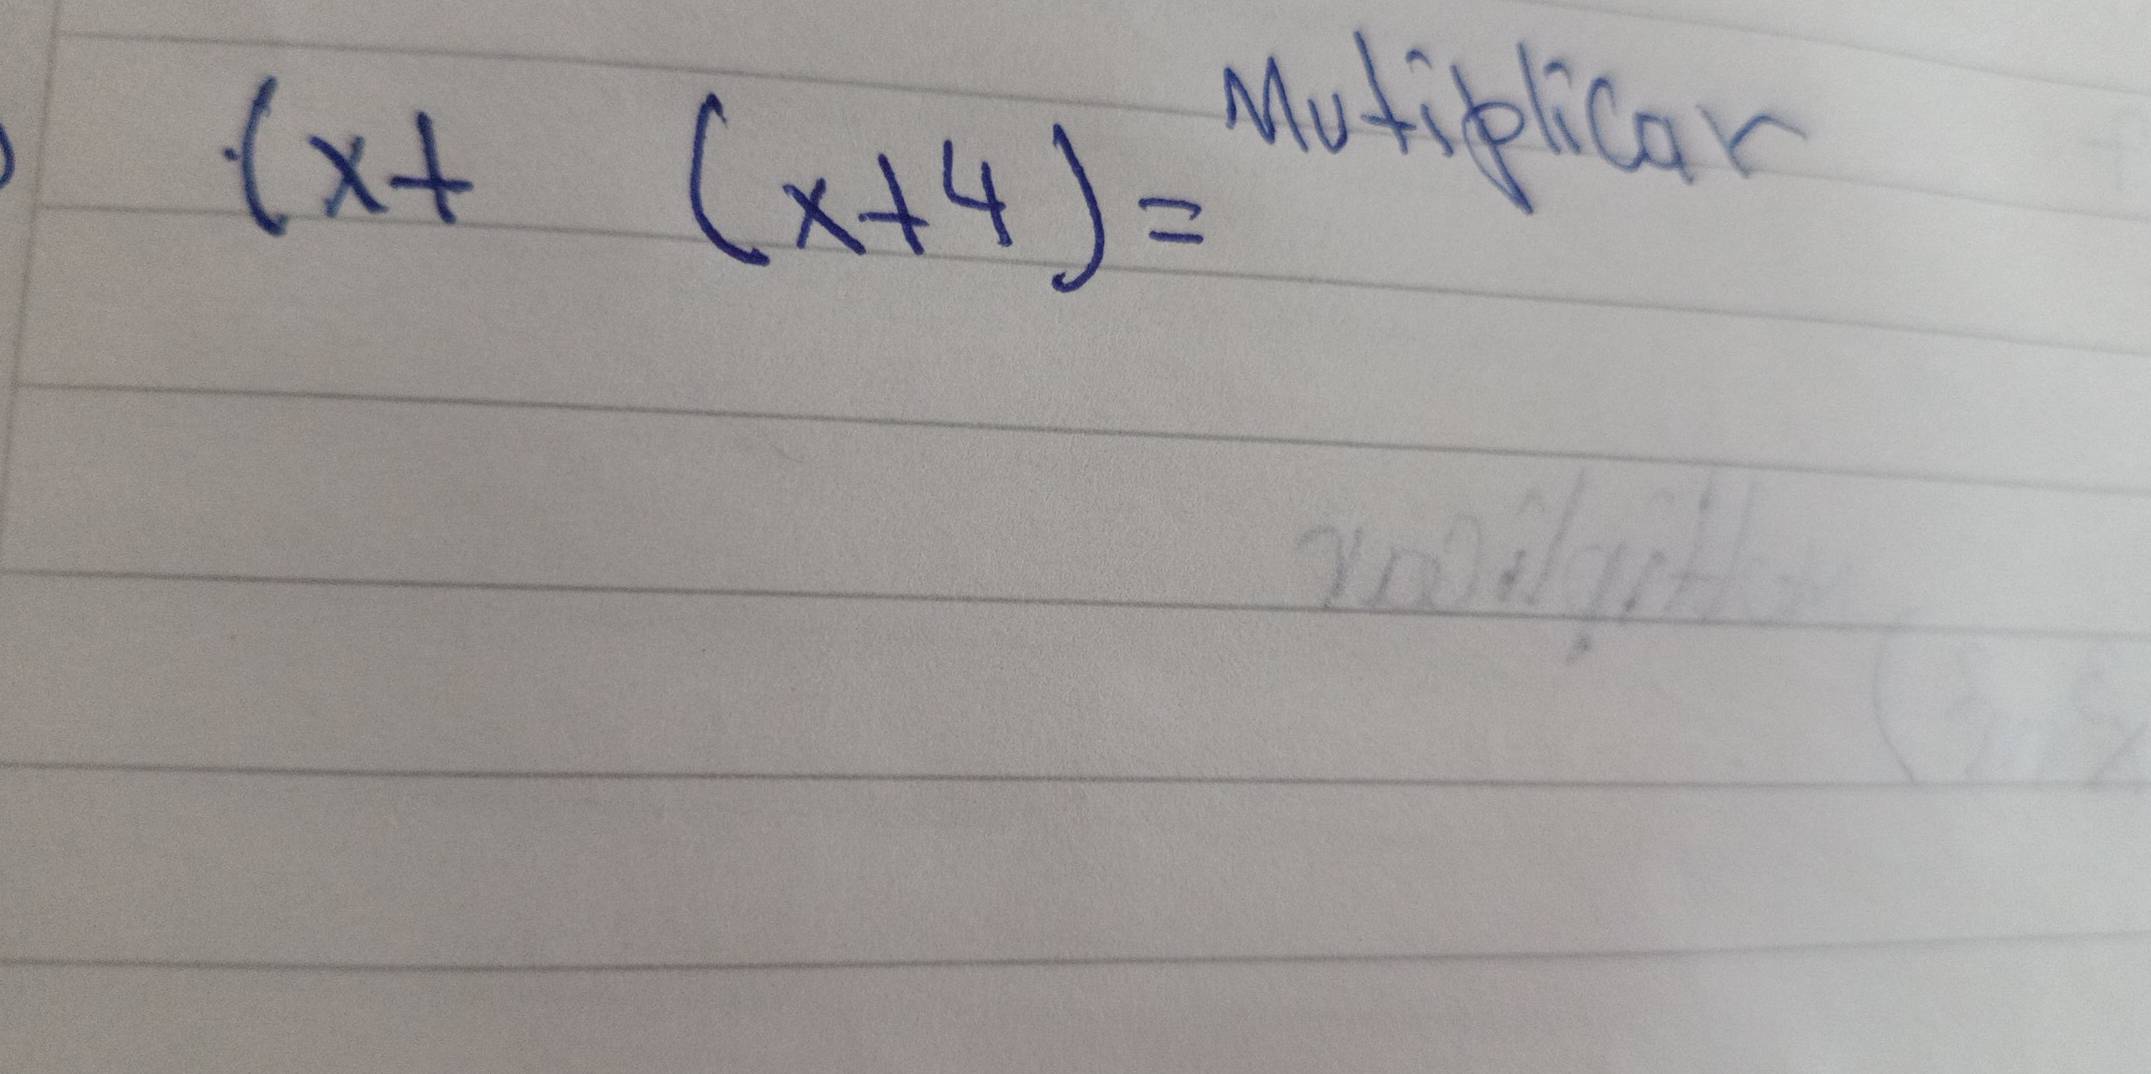 (x+ (x+4)= Mutiplicar